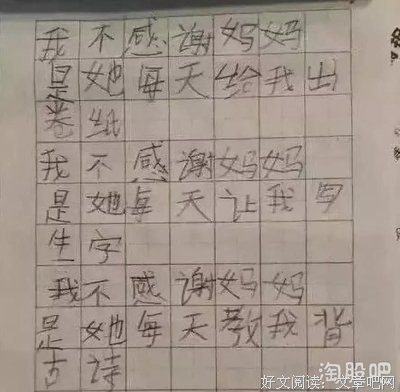 我不感谢妈妈
是她每天给我出
卷纸
我不感谢妈妈
是她每天让我写
生字
我不感谢妈妈
是她每天教我背
古诗
淘股吧
好文阅读：文章吧网